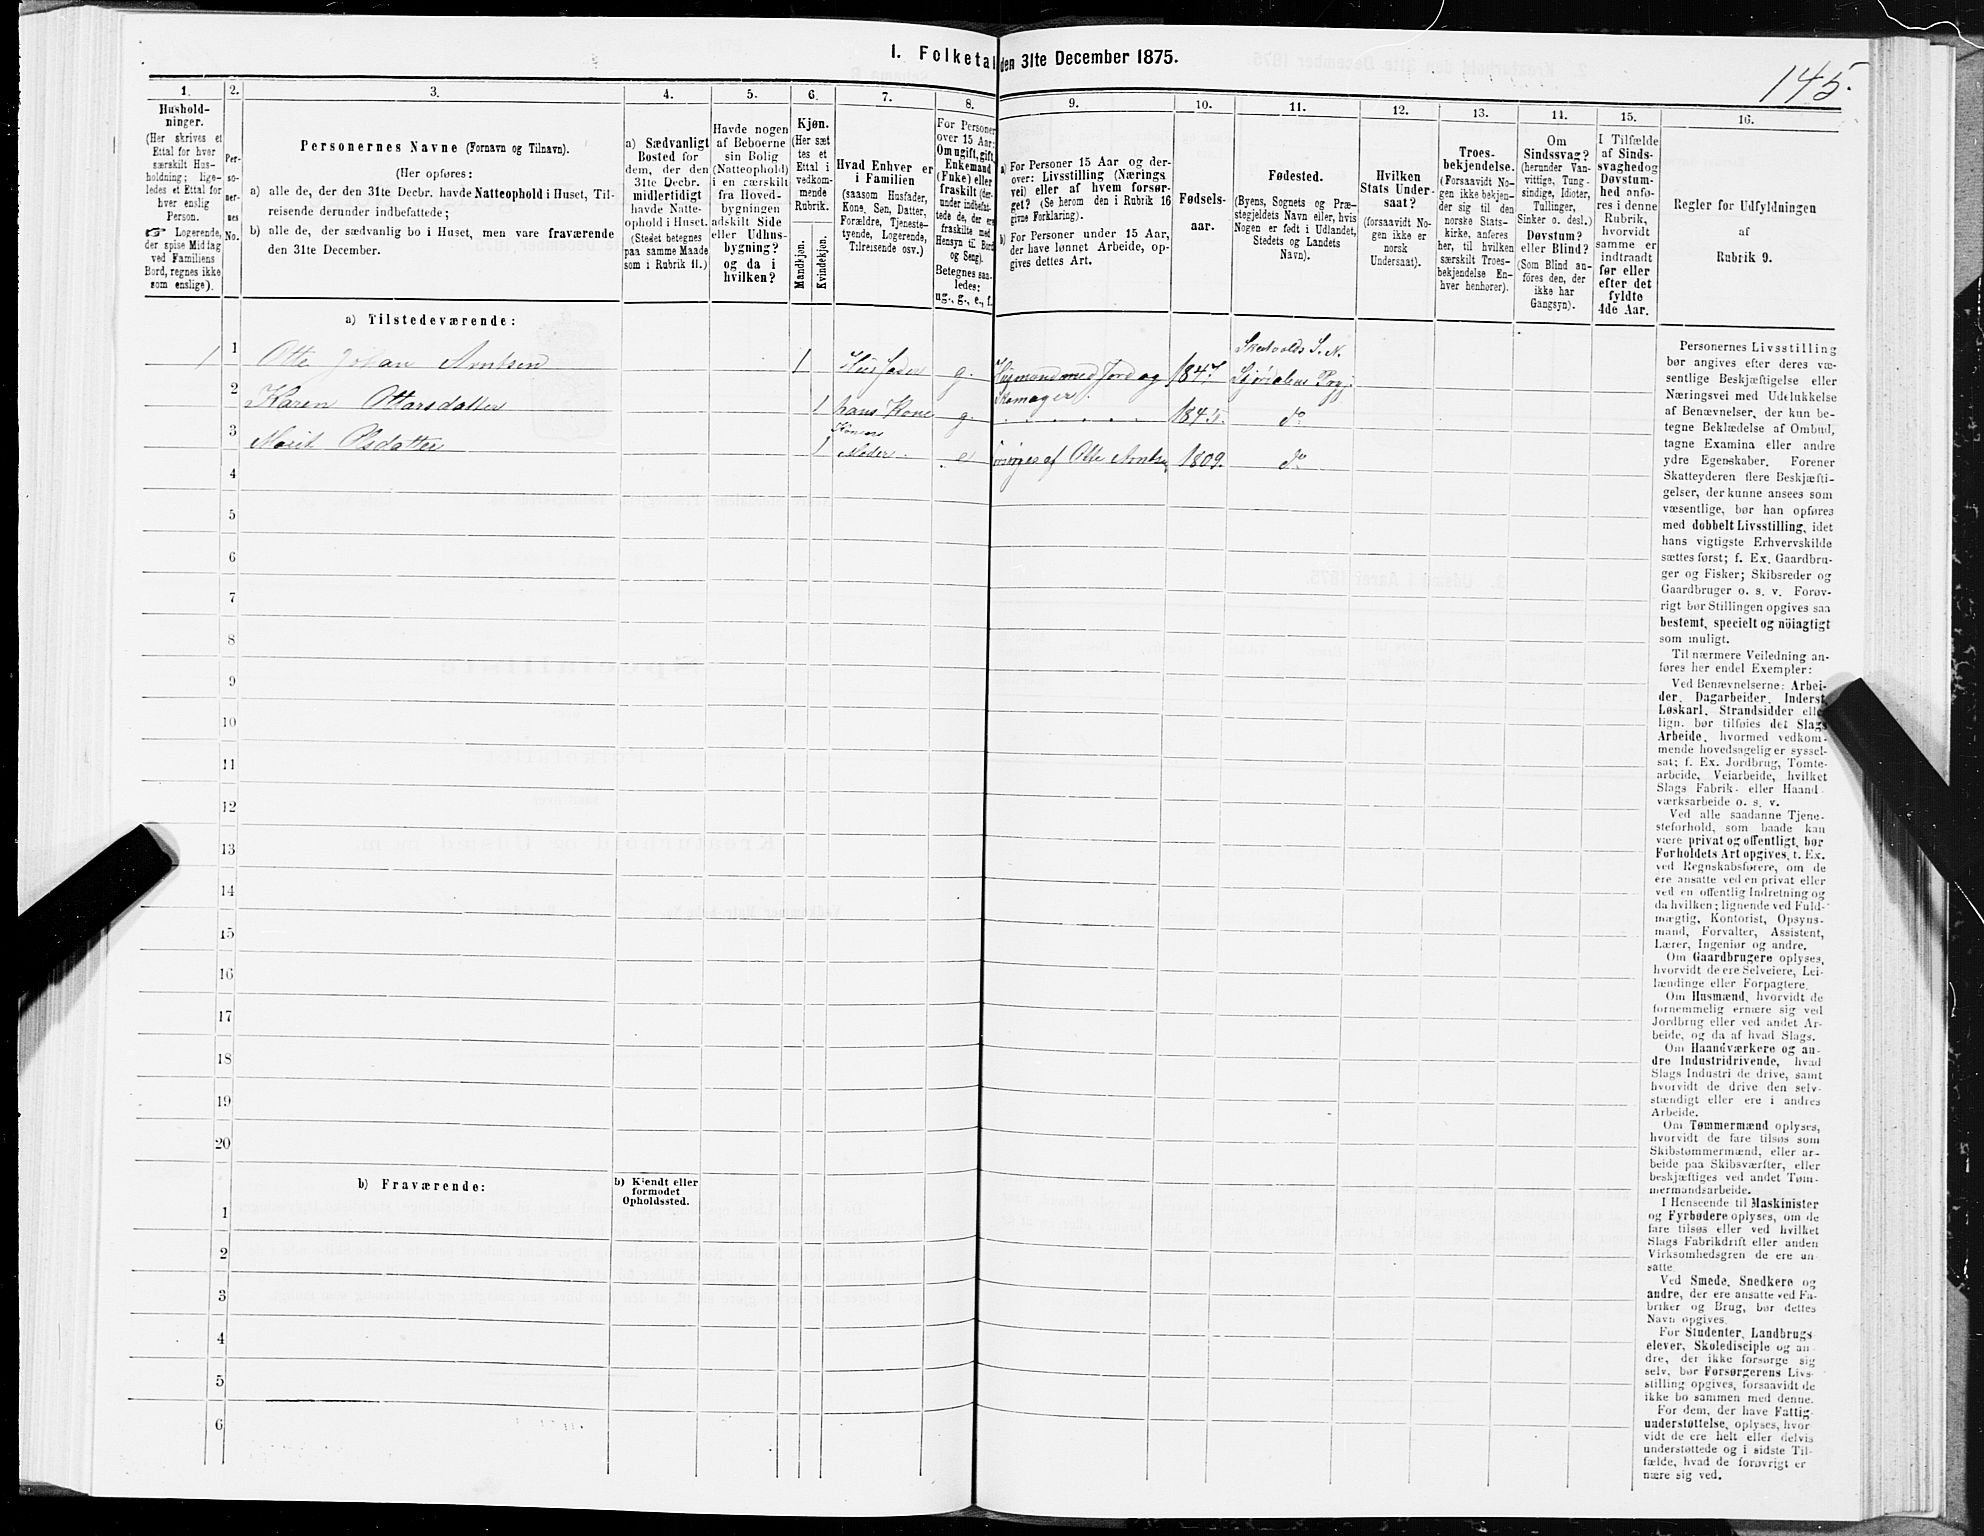 I. Folketal den 31te December 1875.
145.
1.
Hushold-
ninger.
(Her skrives et
Ettal for hver
særskilt Hus-
holdning; lige-
ledes et Ettal for
hver enslig
Person.
☞ Logerende,
der spise Middag
ved Familiens
Bord, regnes ikke
som enslige).
2.
Per-
so-
ner-
nes
No.
3.
Personernes Navne (Fornavn og Tilnavn).
(Her opføres:
a) alle de, der den 31te Decbr. havde Natteophold i Huset, Til-
reisende derunder indbefattede;
b) alle de, der sædvanlig bo i Huset, men vare fraværende
den 31te December.
4.
a) Sædvanligt
Bosted for
dem, der den
31te Decbr.
midlertidigt
havde Natte-
ophold i Huset.
(Stedet betegnes
paa samme Maade
som i Rubrik 11.)
5.
Havde nogen
af Beboerne
sin Bolig
(Natteophold)
i en særskilt
fra Hoved-
bygningen
adskilt Side
eller Udhus-
bygning?
og da i
hvilken?
6.
Kjøn.
(Her sæt
tes et
Ettal i
vedkom-
mende
Rubrik.
Mandkjøn.
Kvindekjøn.
7.
Hvad Enhver er
i Familien
(saasom Husfader,
Kone, Søn, Datter,
Forældre, Tjeneste-
tyende, Logerende,
Tilreisende osv.)
8.
For Personer
over 15 Aar:
Om ugift, gift,
Enkemand
(Enke) eller
fraskilt (der-
under indbefat-
tede de, der ere
fraskilte med
Hensyn til Bord
og Seng).
Betegnes saa-
ledes:
ug., g., e., f.
9.
a) For Personer 15 Aar og der-
over: Livsstilling (Nærings
vei) eller af hvem forsør-
get? (Se herom den i Rubrik 16
givne Forklaring).
b) For Personer under 15 Aar,
der have lønnet Arbeide, op-
gives dettes Art.
10.
Fødsels-
aar.
11.
Fødested.
(Byens, Sognets og Præ-
stegjeldets Navn eller, hvis
Nogen er født i Udlandet,
Stedets og Landets
Navn).
12.
Hvilken
Stats Under-
saat?
(forsaavidt No-
gen ikke er
norsk
Undersaat).
13.
Troes-
bekjendelse.
(Forsaavidt No-
gen ikke bekjen-
der sig til den
norske Stats-
kirke, anføres
her, til hvilken
særskilt Troes-
bekjendelse En-
hver henhører).
14.
Om
Sindssvag?
(herunder Van-
vittige, Tung-
sindige, Idioter,
Tullinger,
Sinker o. desl.)
Døvstum?
eller Blind?
(Som Blind an-
føres den, der
ikke har
Gangsyn).
15.
I Tilfælde
af Sinds-
svaghed og
Døvstum-
hed anfø-
res i denne
Rubrik,
hvorvidt
samme er
indtraadt
før eller
efter det
fyldte
4de Aar.
16.
Regler for Udfyldningen
af
Rubrik 9.
a) Tilstedeværende:
1 1 Otte Johan Arntsen 1 Husfader g. Husmand med Jord og Skomager. 1847 Skatvolds S. N. Stjørdalens Pgj.
2 Karen Ottarsdatter 1 hans Kone g. 1845. do
3 Marit Olsdatter 1 Konens Moder. e forsørges af Otte Arntsen 1809. do
4
5
6
7
8
9
10
11
12
13
14
15
16
17
18
19
20
b) Fraværende:
b) Kjendt eller
formodet
Opholdssted.
1
2
3
4
5
6
Personernes Livsstilling
bør angives efter deres væ-
sentlige Beskjæftigelse eller
Næringsvei med Udelukkelse
af Benævnelser, der kun be-
tegne Beklædelse af Ombud,
tagne Examina eller andre
ydre Egenskaber. Forener
Skatteyderen flere Beskjæfti-
gelser, der kunne ansees som
væsentlige, bør han opføres
med dobbelt Livsstilling, idet
hans vigtigste Erhvervskilde
sættes først; f. Ex. Gaardbru-
ger og Fisker; Skibsreder og
Gaardbruger o. s. v. Forøv-
rigt bør Stillingen opgives saa
bestemt, specielt og nöiagtigt
som muligt.
Til nærmere Veiledning an-
føres her endel Exempler:
Ved Benævnelserne: Arbei-
der, Dagarbeider, Inderst,
Løskarl, Strandsidder eller
lign. bør tilføies det Slags
Arbeide, hvormed vedkom-
mende hovedsagelig er syssel-
sat; f. Ex. Jordbrug, Tomte-
arbeide, Veiarbeide, hvilket
Slags Fabrik- eller Haand-
værksarbeide o. s. v.
Ved alle saadanne Tjene-
steforhold, som baade kan
være privat og offentligt, bør
Forholdets Art opgives, t. Ex.
ved Regnskabsførere, om de
ere ansatte ved en privat eller
ved en offentlig Indretning og
da hvilken; lignende ved Fuld-
mægtig, Kontorist, Opsyns-
mand, Forvalter, Assistent,
Lærer, Ingeniør og andre.
Om Gaardbrugere oplyses,
hvorvidt de ere Selveiere, Lei-
lændinge eller Forpagtere.
Om Husmænd, hvorvidt de
fornemmelig ernære sig ved
Jordbrug eller ved andet Ar-
beide, og da af hvad Slags.
Om Haandværkere og an-
dre Industridrivende, hvad
Slags Industri de drive, samt
hvorvidt de drive den selv-
stændigt eller ere i andres
Arbeide.
Om Tømmermænd oplyses,
hvorvidt de fare tilsøs som
Skibstømmermænd, eller ar-
beide paa Skibsværfter, eller
beskjæftiges ved andet Tøm-
mermandsarbeide.
I Henseende til Maskinister
og Fyrbødere oplyses, om de
fare tilsøs eller ved hvilket
Slags Fabrikdrift eller anden
Virksomhedsgren de ere an-
satte.
Ved Smede, Snedkere og
andre, der ere ansatte ved Fa-
briker og Brug, bør dettes
Navn opgives.
For Studenter, Landbrugs
elever, Skoledisciple og an-
dre, der ikke forsørge sig
selv, bør Forsørgerens Livs-
stilling opgives, forsaavidt de
ikke bo sammen med denne.
For dem, der have Fattig-
understøttelse, oplyses, hvor
vidt de ere helt eller delvis
understøttede og i sidste Til-
fælde, hvad de forøvrigt er
nære sig ved.